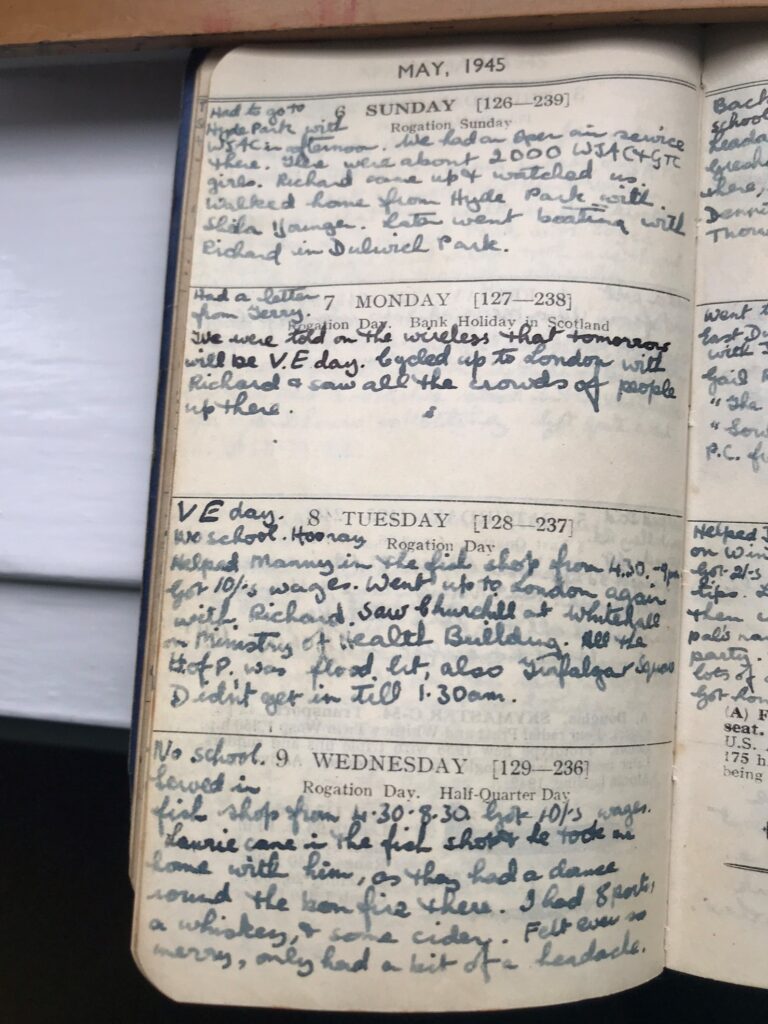 MAY, 1945
6 SUNDAY [126—239]
Rogation Sunday
Had to go to
Hyde Park with
WJAC in afternoon. We had an open air service
there. There were about 2000 WJAC & GTC
girls. Richard came up & watched us.
Walked home from Hyde Park with
Shila Younger. Later went boating with
Richard in Dulwich Park.
7 MONDAY [127—238]
Rogation Day. Bank Holiday in Scotland
Had a letter
from Terry.
We were told on the wireless that tomorrow
will be V.E day. Cycled up to London with
Richard & saw all the crowds of people
up there.
8 TUESDAY [128—237]
Rogation Day
V E day.
No school. Hooray
Helped Manny in the fish shop from 4.30.-9pm
Got 10/-s wages. Went up to London again
with Richard. Saw Churchill at Whitehall
on Ministry of Health Building. All the
H.of P. was flood lit, also Trafalgar Square
Didn't get in till 1.30am.
9 WEDNESDAY [129—236]
Rogation Day. Half-Quarter Day
No school.
Served in
fish shop from 4.30-8.30. Got 10/-s wages.
Laurie came in the fish shop & he took me
home with him, as they had a dance
round the bon fire there. I had 8 ports,
a whiskey, & some cider. Felt ever so
merry, only had a bit of a headache.
Back
school
there,
Went t
East Du
with
Gail R
"The
P.C. f
Helped
on Win
Got 2/-s
tips.
then
party.
lots of
Got hom
(A) F
seat.
U.S. A
175 h
being